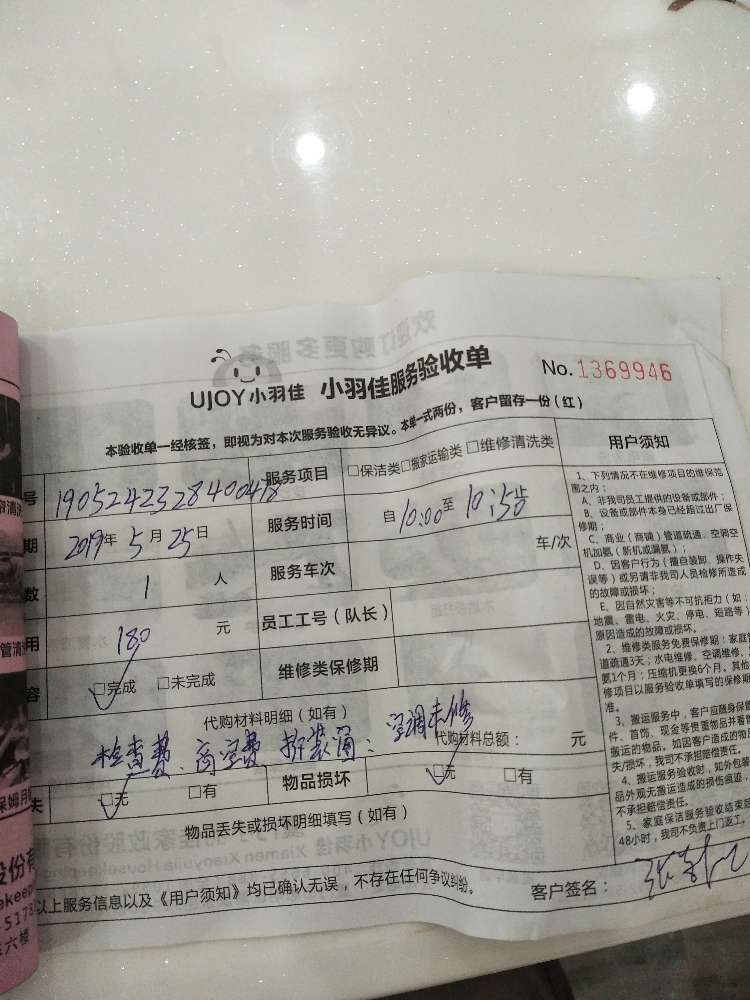 欢迎订购更多服务
UJOY小羽佳 小羽佳服务验收单 No. 1369946
本验收单一经核签，即视为对本次服务验收无异议。本单一式两份，客户留存一份（红）
号 1905242328400478 服务项目 □保洁类□搬家运输类 □维修清洗类
期 2019年 5 月 25 日 服务时间 自 10:00 至 10:50 止
数 1 人 服务车次 车/次
用 180 元 员工工号（队长）
容 □完成 □未完成 维修类保修期
代购材料明细（如有）
检查费、高空费 拆装 空调未修 代购材料总额： 元
失 □无 □有 物品损坏 □无 □有
物品丢失或损坏明细填写（如有）
以上服务信息以及《用户须知》均已确认无误，不存在任何争议纠纷。 客户签名：
用户须知
1、下列情况不在维修项目的维保范
围之内：
A、非我司员工提供的设备或部件；
B、设备或部件本身已经超过出厂保
修期；
C、商业（商铺）管道疏通、空调空
机加氨（新机或漏氨）；
D、因客户行为（擅自装卸、操作失
误等）或另请非我司人员检修所造成
的故障或损坏；
E、因自然灾害等不可抗拒力（如：
地震、雷电、火灾、停电、短路等）
原因造成的故障或损坏。
2、维修类服务免费保修期：家庭
道疏通3天；水电维修、空调维修、
氨1个月；压缩机更换6个月。其他
修项目以服务验收单填写的保修期
准。
3、搬运服务中，客户应随身保
件、首饰、现金等贵重物品并看
搬运的物品。如因客户造成的物
失/损坏，我司不承担赔偿责任。
4、搬运服务验收时，如外包装
品外观无搬运造成的损伤痕迹，
不承担赔偿责任。
5、家庭保洁服务验收结束
48小时，我司不负责上门返工。
管清
保姆月
股份有
5178
六楼